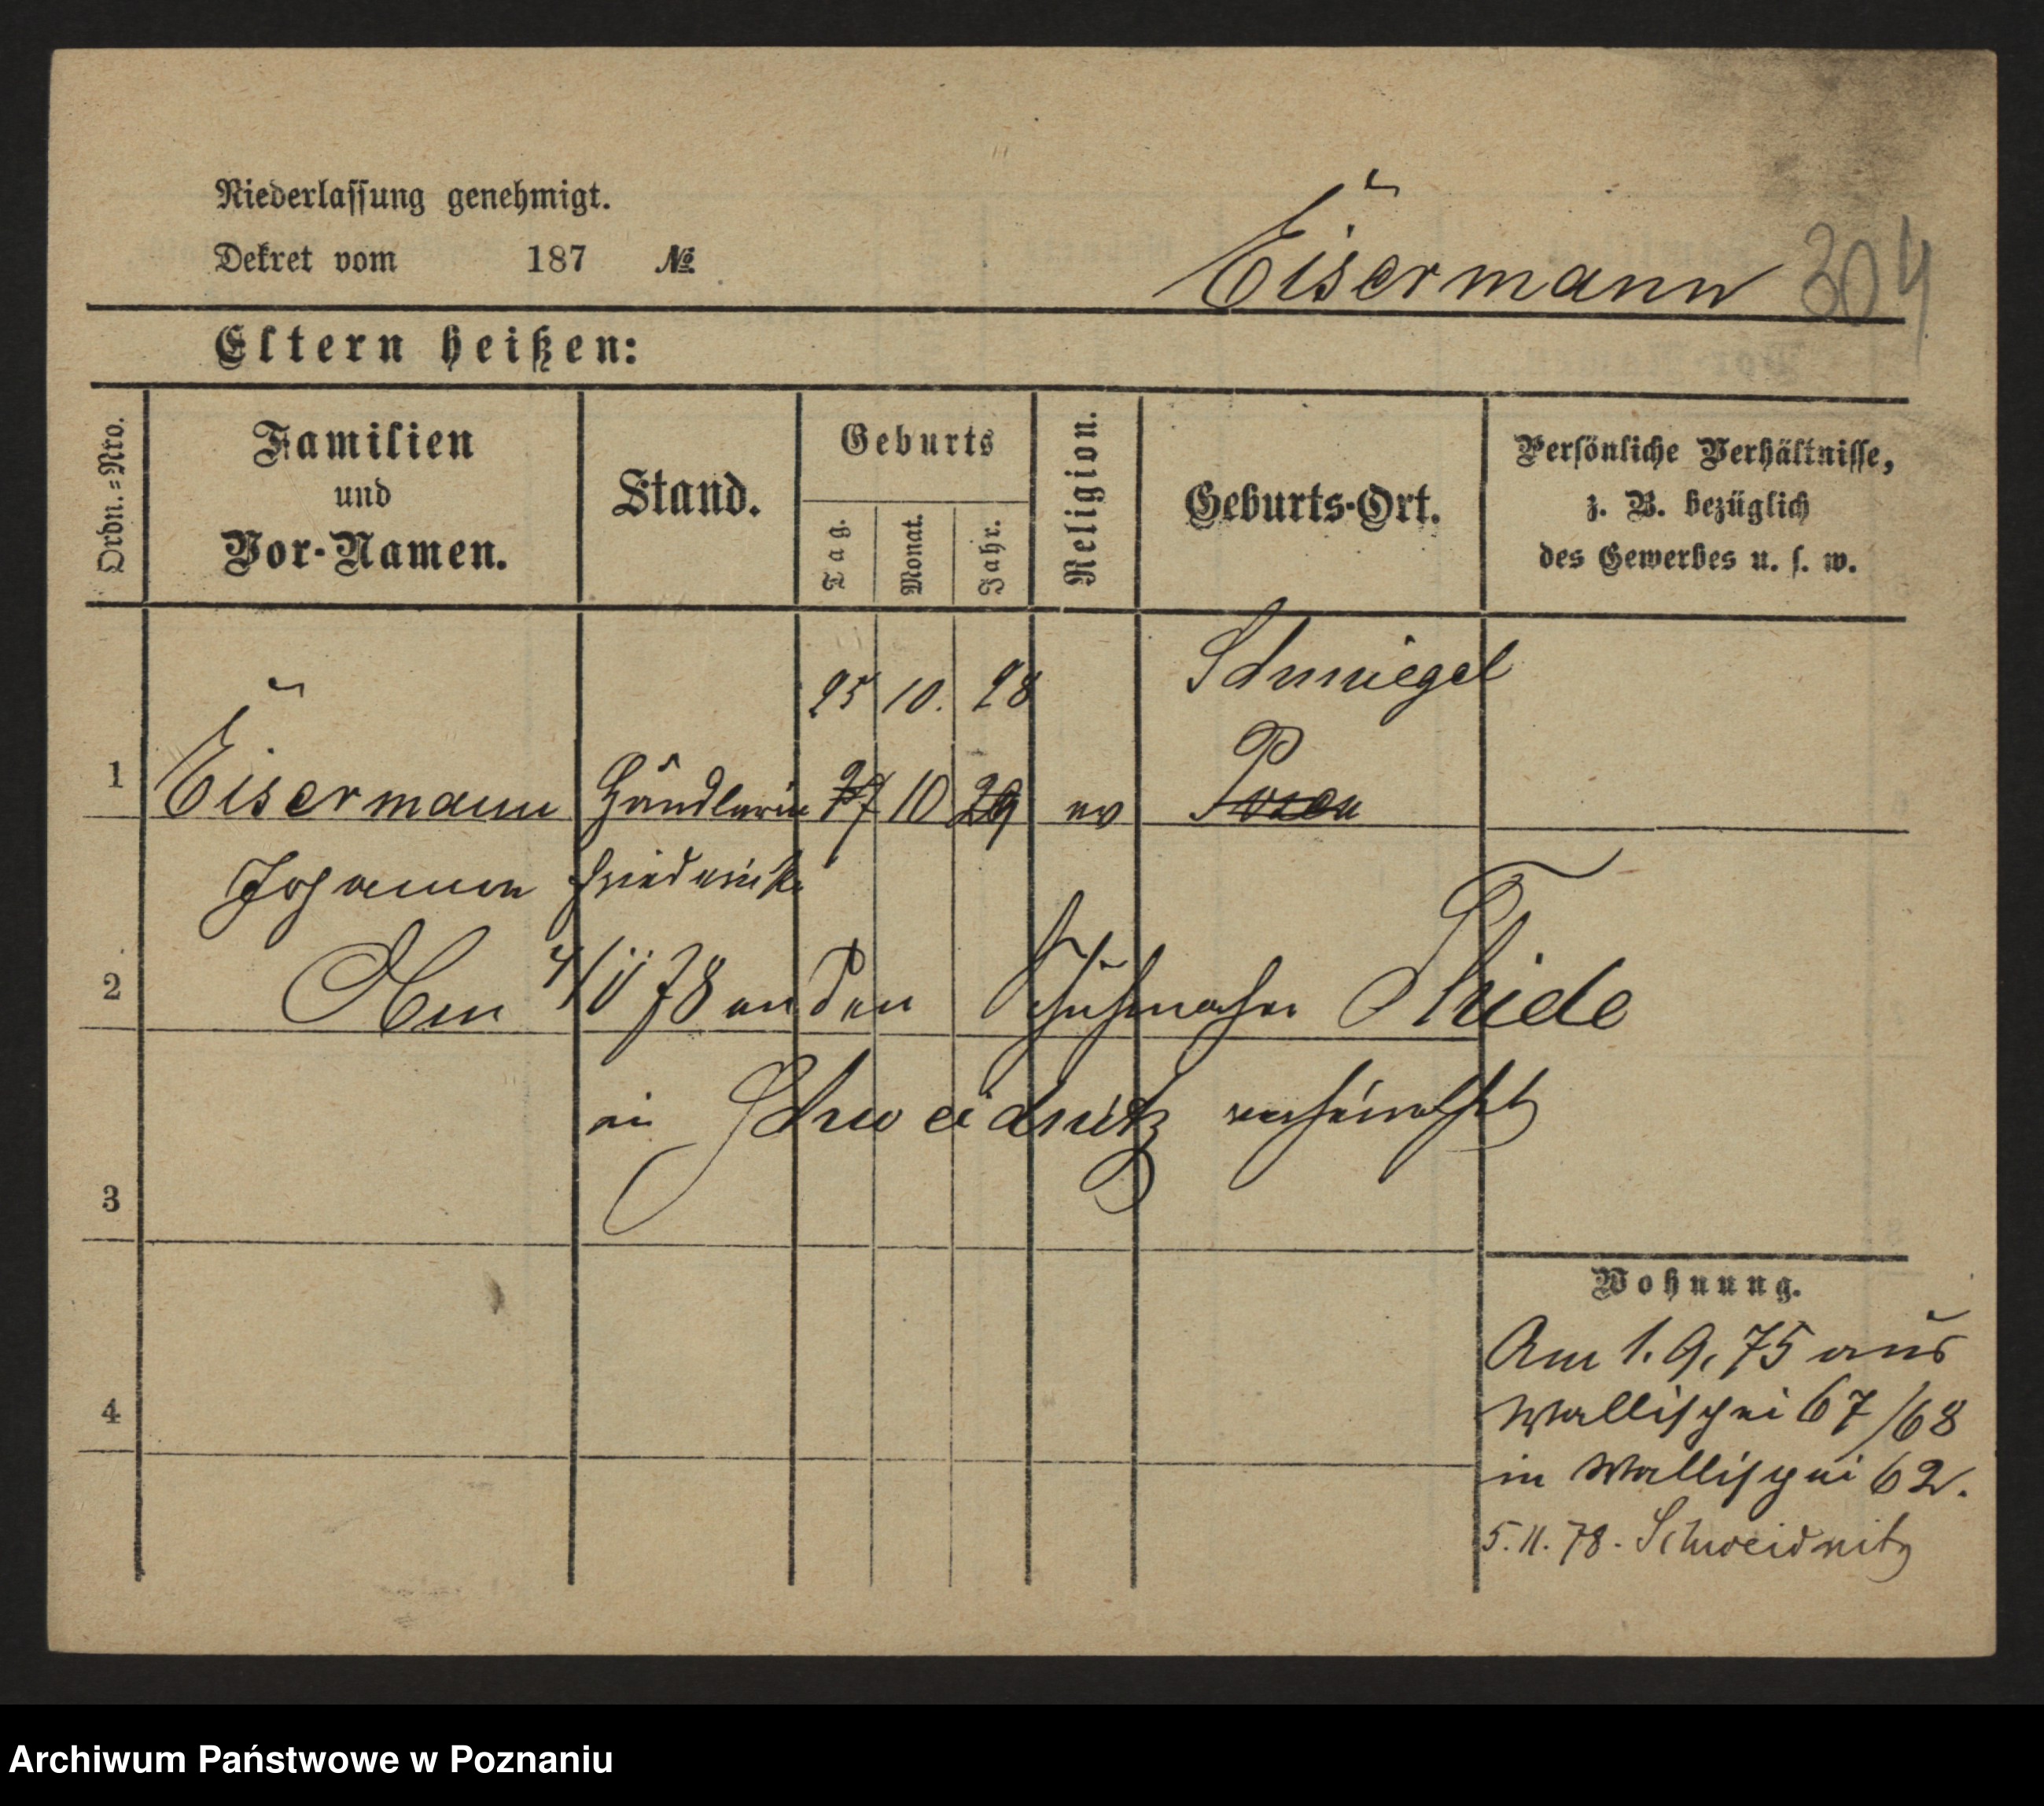 Niederlassung genehmigt.
Dekret vom 187 №
Eisermann 304
Eltern heißen:
Ordn.=Nro.
Familien
und
Vor-Namen.
Stand.
Geburts
Tag.
Monat.
Jahr.
Religion.
Geburts-Ort.
Persönliche Verhältnisse,
z. B. bezüglich
des Gewerbes u. s. w.
25 10. 28 Schmiegel
1 Eisermann Händlerin 27 10 29 ev Posen
Johanna Friederike
2 Am 4/11 78 an den Schuhmacher Thiele
in Schweidnitz verheirathet
3
Wohnung.
Am 1. 9. 75 aus
Wallischei 67/68
4
in Wallischei 62.
5. 11. 78. Schweidnitz
Archiwum Państwowe w Poznaniu